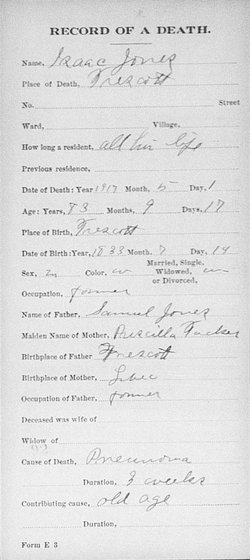 RECORD OF A DEATH.
Name, Isaac Jones
Place of Death, Trescott
No. Street
Ward, Village,
How long a resident, all his life
Previous residence,
Date of Death: Year 1917 Month, 5 Day, 1
Age: Years, 83 Months, 9 Days, 17
Place of Birth, Trescott
Date of Birth: Year, 1833 Month, 7 Day, 14
Married, Single,
Sex, m Color, w Widowed,
or Divorced.
Occupation, farmer
Name of Father, Samuel Jones
Maiden Name of Mother, Priscilla Tucker
Birthplace of Father Trescott
Birthplace of Mother, Lubec
Occupation of Father, farmer
Deceased was wife of
Widow of
Cause of Death, Pneumonia
Duration, 3 weeks
Contributing cause, old age
Duration,
Form E 3